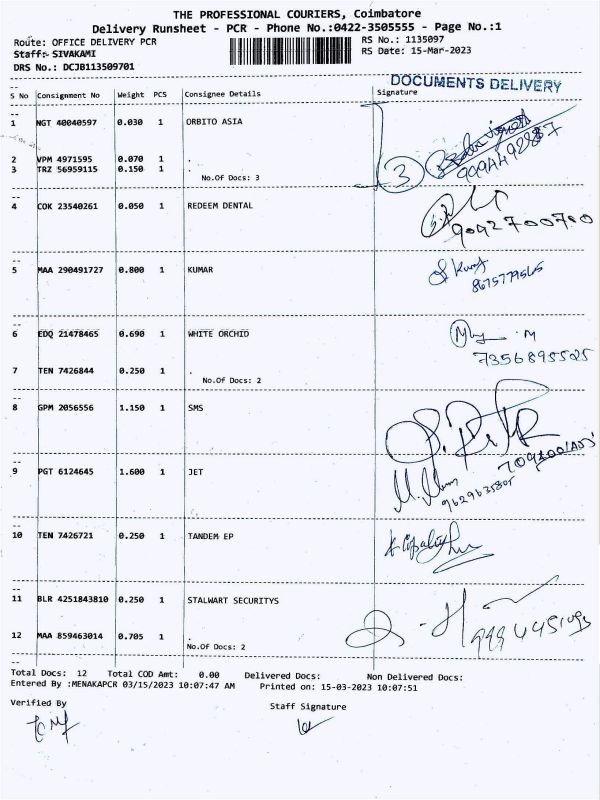 THE PROFESSIONAL COURIERS, Coimbatore
Delivery Runsheet - PCR - Phone No.:0422-3505555 - Page No.:1
Route: OFFICE DELIVERY PCR RS No.: 1135097
Staff:- SIVAKAMI RS Date: 15-Mar-2023
DRS No.: DCJB113509701
DOCUMENTS DELIVERY
S No Consignment No Weight PCS Consignee Details Signature
1 NGT 40040597 0.030 1 ORBITO ASIA
2 VPM 4971595 0.070 1 .
3 TRZ 56959115 0.150 1 . 3
No.Of Docs: 3
4 COK 23540261 0.050 1 REDEEM DENTAL
9042700700
5 MAA 290491727 0.800 1 KUMAR
8675779565
6 EDQ 21478465 0.690 1 WHITE ORCHID
7356895525
7 TEN 7426844 0.250 1 .
No.Of Docs: 2
8 GPM 2056556 1.150 1 SMS
9 PGT 6124645 1.600 1 JET
10 TEN 7426721 0.250 1 TANDEM EP
11 BLR 4251843810 0.250 1 STALWART SECURITYS
12 MAA 859463014 0.705 1 .
No.Of Docs: 2
Total Docs: 12 Total COD Amt: 0.00 Delivered Docs: Non Delivered Docs:
Entered By :MENAKAPCR 03/15/2023 10:07:47 AM Printed on: 15-03-2023 10:07:51
Verified By Staff Signature